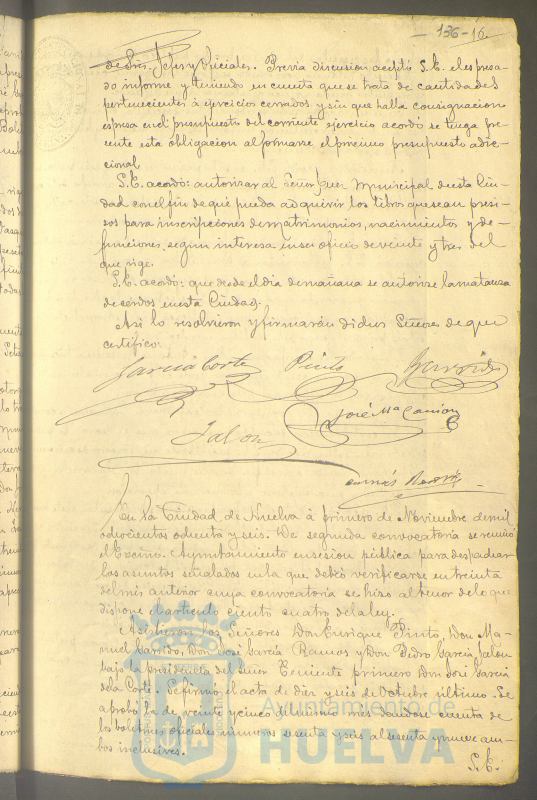 136-16
de Sres. Jefes y Oficiales. Previa discusion aceptó S.E. el espresa-
do informe y teniendo en cuenta que se trata de cantidades
pertenecientes á ejercicios cerrados y sin que halla consignacion
espresa en el presupuesto del corriente ejercicio acordó se tenga pre-
sente esta obligacion al formarse el prócsimo presupuesto adic-
cional.
S.E. acordó: autorizar al Señor Juez Municipal de esta Ciu-
dad con el fin de que pueda adquirir los libros que sean preci-
sos para inscripciones de matrimonios, nacimientos y de-
funciones, segun interesa en su oficio de veinte y tres del
que rige.
S.E. acordó: que desde el dia de mañana se autorice la matanza
de cerdos en esta Ciudad.
Asi lo resolvieron y firmarán dichos Señores de que
certifico.
García Corte Pinto Garrido
José Mª
Jalon
En la Ciudad de Huelva á primero de Noviembre de mil
ochocientos ochenta y seis. De segunda convocatoria se reunió
el Excmo. Ayuntamiento en sesion pública para despachar
los asuntos señalados en la que debió verificarse en treinta
del mes anterior cuya convocatoria se hizo al tenor de lo que
dispone el artículo ciento cuatro de la ley.
Asistieron los Señores Don Enrique Pinto, Don Ma-
nuel Garrido, Don José García Ramos y Don Pedro García Jalon
bajo la presidencia del señor Teniente primero Don José García
de la Corte. Se firmó el acta de diez y seis de Octubre último. Se
aprobó la de veinte y cinco del mismo mes dandose cuenta de
los boletines oficiales números sesenta y seis al sesenta y nueve am-
bos inclusives.
S.E.
Ayuntamiento de
HUELVA